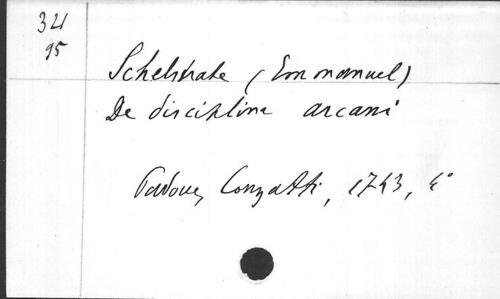 321
95
Schelstrate (Emmanuel)
De disciplina arcani
Padoue, Conzatti, 1743, 4°